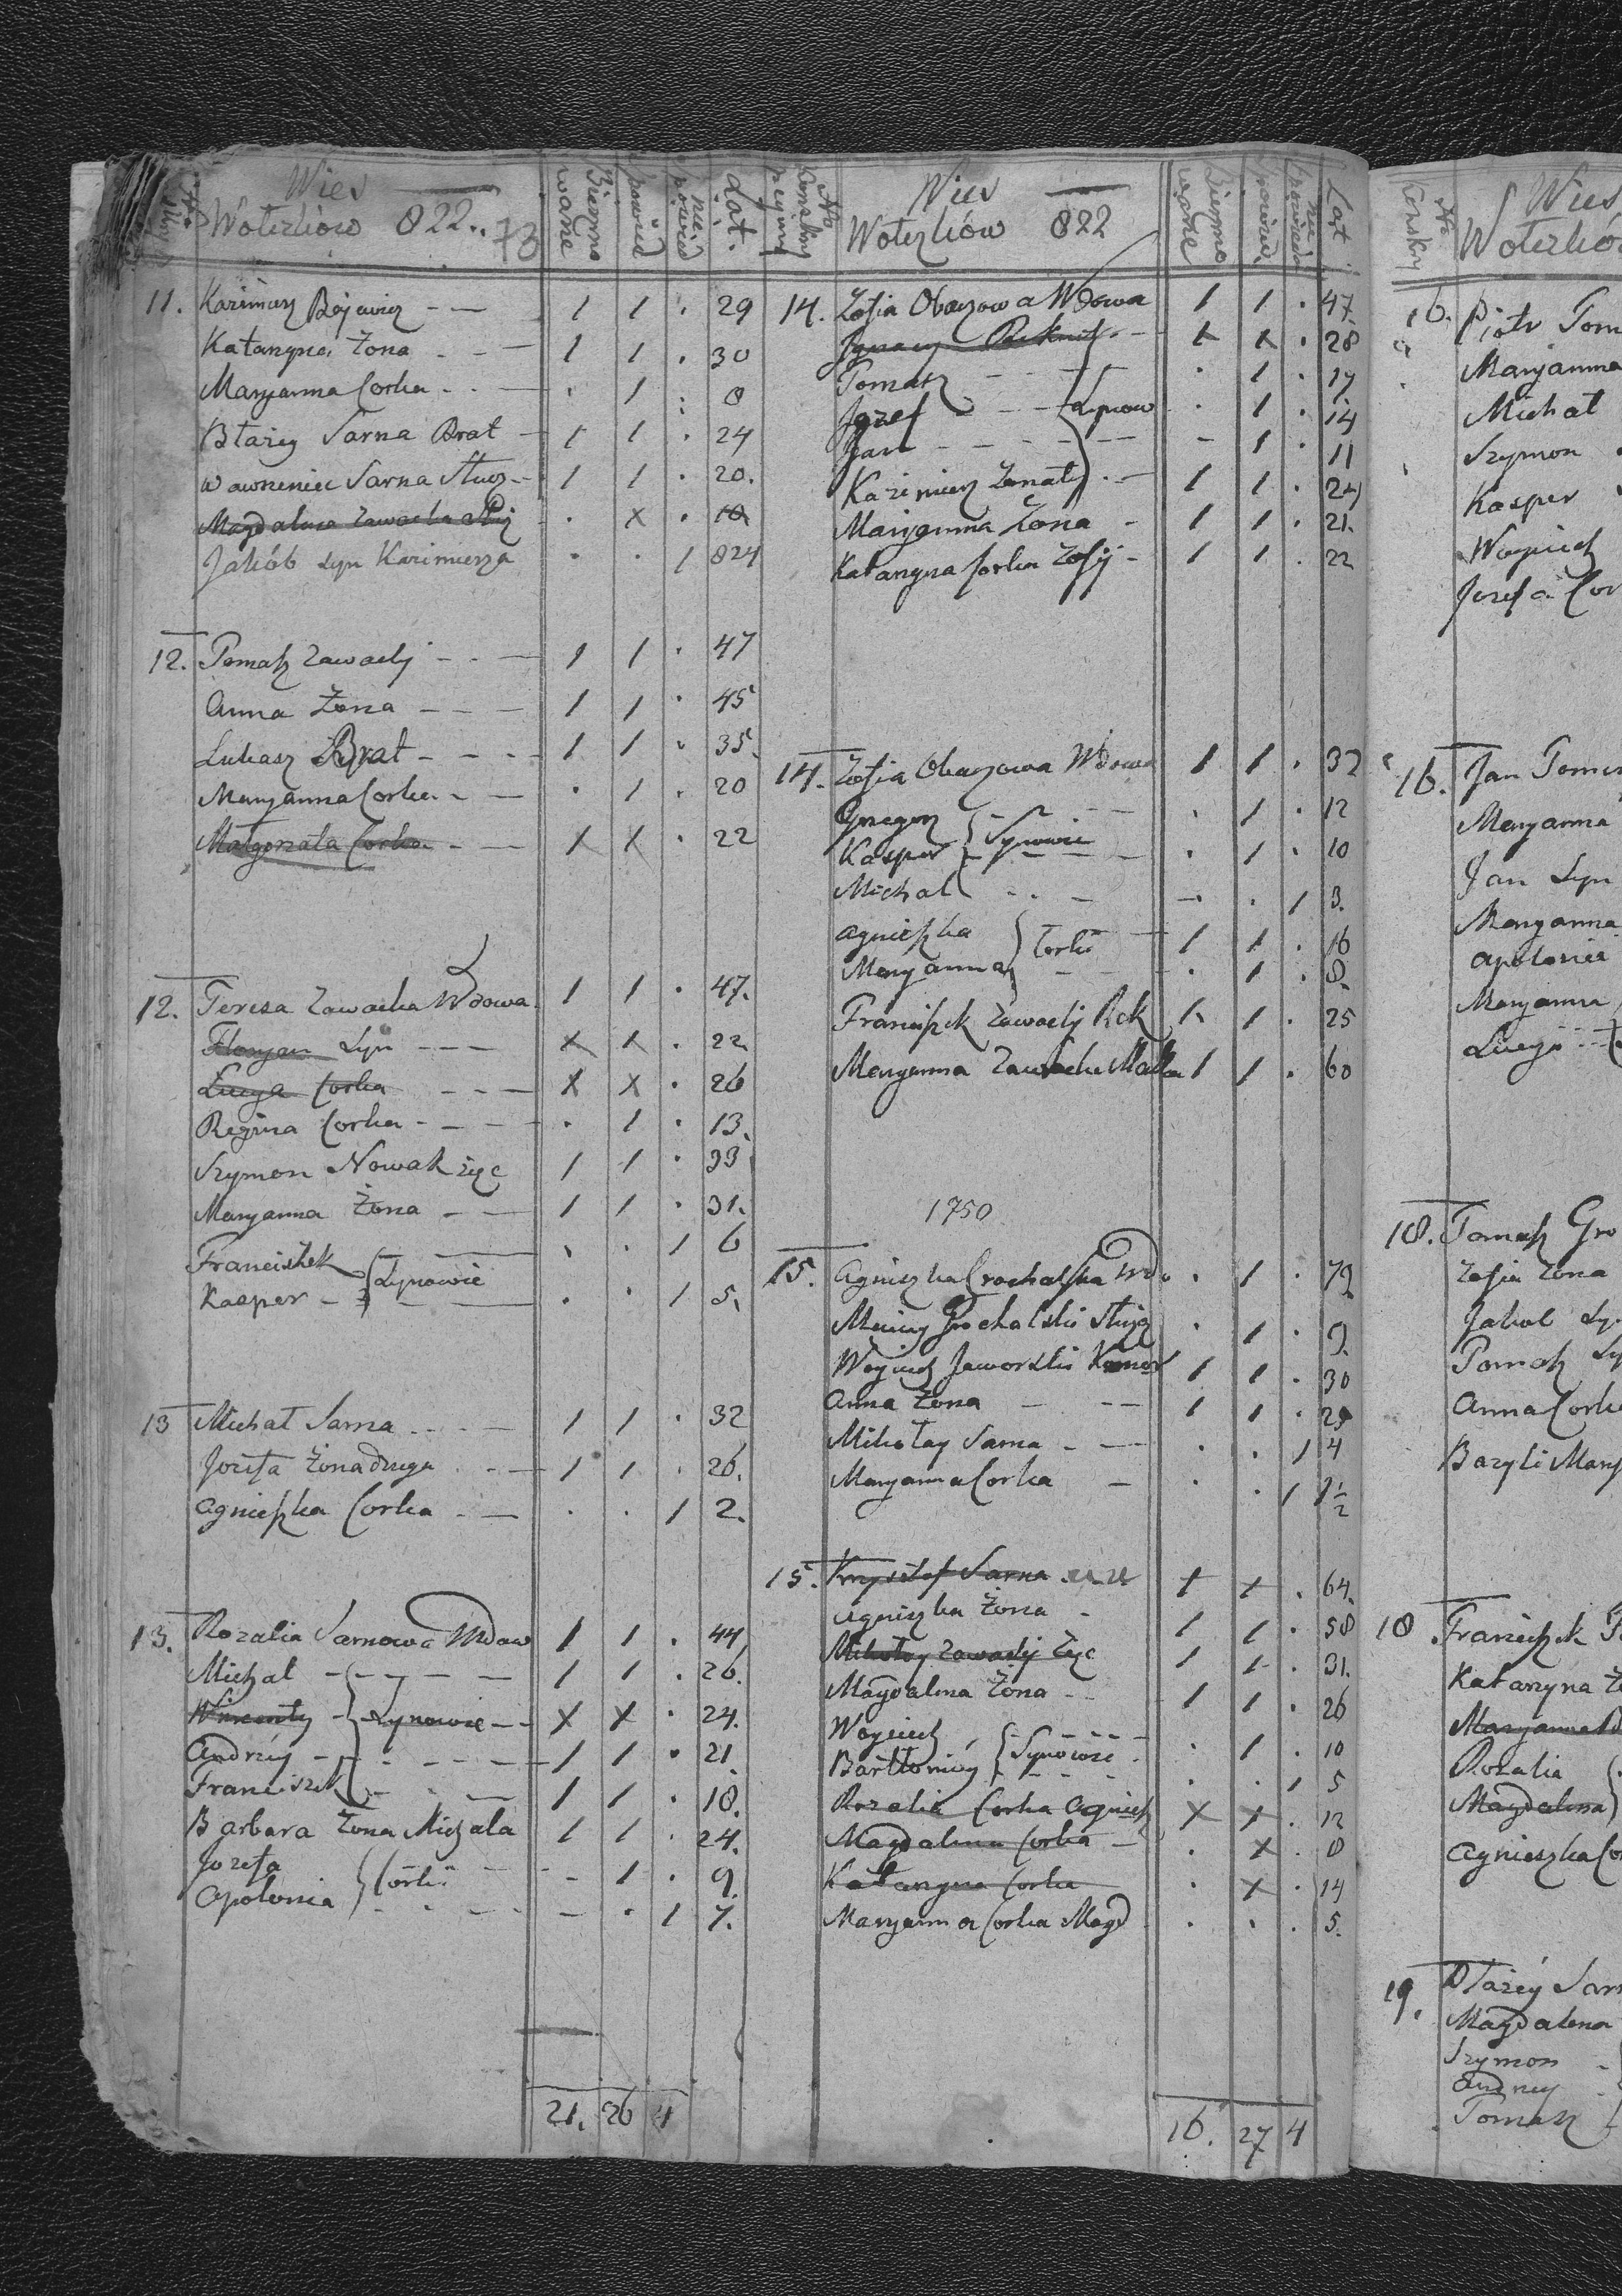 Wies
Woterkow 822.. 73
Bierzmo
wane
spowied
nie
spowied
Lat.
11. Kazimierz Bojewicz 1 1 . 29
Katarzyna Żona 1 1 . 30
Maryanna Corka . 1 . 8
Błażey Sarna Brat 1 1 . 24
Wawrzeniec Sarna Służ 1 1 . 20.
Magdalena Zawacka Służ . X . 18
Jakób Syn Kazimierza . . 1 824
12. Tomasz Zawacky 1 1 . 47
Anna Żona 1 1 . 45
Lukasz Brat 1 1 . 35.
Maryanna Corka . 1 . 20
Małgorzata Corka X X . 22
12. Teresa Zawacka Wdowa 1 1 . 47.
Floryan Syn X X . 22
Lucya Corka X X . 26
Regina Corka . 1 . 13.
Szymon Nowak życ 1 1 . 33
Maryanna Żona 1 1 . 31.
Franciszek . . 1 6
Kasper } Synowie . . 1 5.
13 Michał Sarna 1 1 . 32
Jozefa Żona druga 1 1 . 26.
Agnieszka Corka . . 1 2.
13. Rozalia Sarnowa Wdow 1 1 . 44
Michał 1 1 . 26.
Wincenty } Synowie X X . 24.
Andrzey 1 1 . 21
Franciszek 1 1 . 18.
Barbara Żona Michała 1 1 . 24.
Jozefa - 1 . 9.
Apolonia } Corki - . 1 7.
21. 26 4
No
Konskry
pcyiny
Wies
Woterkow 822
Bierzmo
wane
spowied
nie
spowied
Lat
14. Zofia Obarzowa Wdowa 1 1 . 47.
Ignacy X X . 28
Tomasz . 1 . 17
Jozef } Synow . 1 . 14
Jan - 1 . 11
Kazimierz Żonaty 1 1 . 24
Maryanna Żona 1 1 . 21.
Katarzyna Corka Zofij 1 1 . 22
14. Zofia Obarzowa Wdowa 1 1 . 32
Grzegorz . 1 . 12
Kasper } Synowie . 1 . 10
Michał - . 1 3.
Agnieszka 1 1 . 16
Maryanna } Corki . 1 . 8.
Franciszek Zawacky Rek 1 1 . 25
Maryanna Zawacka Matka 1 1 . 60
1750
15. Agnieszka Grochalska Wdo . 1 . 72
Maciey Grochalski Służ . 1 . 9.
Woyciech Jaworski Komor 1 1 . 30
Anna Żona 1 1 . 29
Mikołay Sarna . . 1 4
Maryanna Corka . . 1 1 1/2
15. Krzysztof Sarna X X . 64.
Agnieszka Żona 1 1 . 58
Mikołay Zawacky Życ 1 1 . 31.
Magdalena Żona 1 1 . 26
Woyciech . 1 . 10
Bartłomiey } Synowie . . 1 5
Rozalia Corka Agniesz X X . 12
Magdalena Corka . X . 8
Katarzyna Corka . X . 14
Maryanna Corka Magd . . . 5.
16. 27 4
No
Konskry
Wies
Woterko
16. Piotr Tom
Maryanna
Michał
Szymon
Kasper
Woyciech
Jozefa Cor
16. Jan Tom
Maryanna
Jan Syn
Maryanna
Apolonia
Maryanna
Lucya
18. Tomasz Gro
Zofia Żona
Jakob Sy
Tomasz Sy
Anna Cork
Bazyli Mary
18 Franciszek
Katarzyna Ż
Maryanna
Rozalia
Magdalena
Agnieszka Co
19. Błażey Sar
Magdalena
Szymon
Andrzey
Tomasz